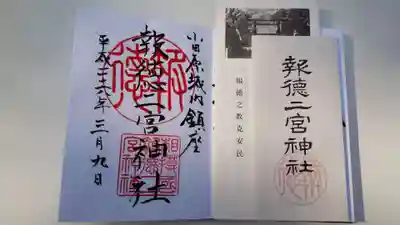 小田原城内鎮座
報徳二宮神社
平成二十六年三月九日
報徳
報徳之教克安民
報徳二宮神社